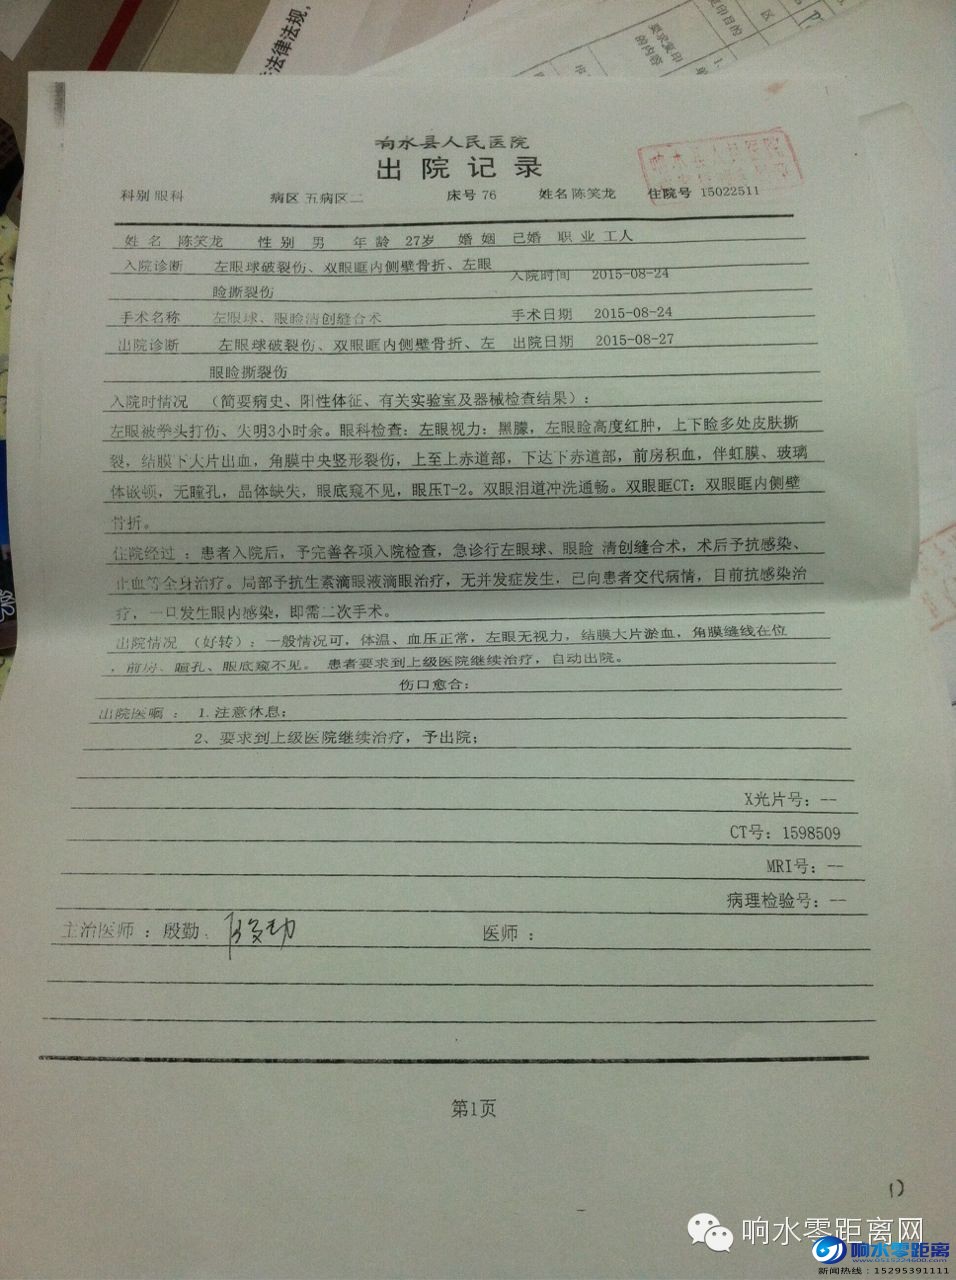 法律法规,
要求复印
的内容
印目的
区
响水县人民医院
出院记录
响水县人民医院
科别 眼科 病区 五病区二 床号 76 姓名 陈笑龙 住院号 15022511
姓 名 陈笑龙 性 别 男 年 龄 27岁 婚 姻 已婚 职 业 工人
入院诊断 左眼球破裂伤、双眼眶内侧壁骨折、左眼 入院时间 2015-08-24
睑撕裂伤
手术名称 左眼球、眼睑清创缝合术 手术日期 2015-08-24
出院诊断 左眼球破裂伤、双眼眶内侧壁骨折、左 出院日期 2015-08-27
眼睑撕裂伤
入院时情况 （简要病史、阳性体征、有关实验室及器械检查结果）：
左眼被拳头打伤、失明3小时余。眼科检查：左眼视力：黑朦，左眼睑高度红肿，上下睑多处皮肤撕
裂，结膜下大片出血，角膜中央竖形裂伤，上至上赤道部，下达下赤道部，前房积血，伴虹膜、玻璃
体嵌顿，无瞳孔，晶体缺失，眼底窥不见，眼压T-2。双眼泪道冲洗通畅。双眼眶CT：双眼眶内侧壁
骨折。
住院经过 ：患者入院后，予完善各项入院检查，急诊行左眼球、眼睑 清创缝合术，术后予抗感染、
止血等全身治疗。局部予抗生素滴眼液滴眼治疗，无并发症发生，已向患者交代病情，目前抗感染治
疗，一旦发生眼内感染，即需二次手术。
出院情况 （好转）：一般情况可，体温、血压正常，左眼无视力，结膜大片淤血，角膜缝线在位
，前房、瞳孔、眼底窥不见。 患者要求到上级医院继续治疗，自动出院。
伤口愈合：
出院医嘱 ： 1.注意休息；
2、要求到上级医院继续治疗，予出院；
X光片号：--
CT号：1598509
MRI号：--
病理检验号：--
主治医师 ：殷勤 医师 ：
第1页
1)
响水零距离网
响水零距离
www.0515224600.com
新闻热线：15295391111